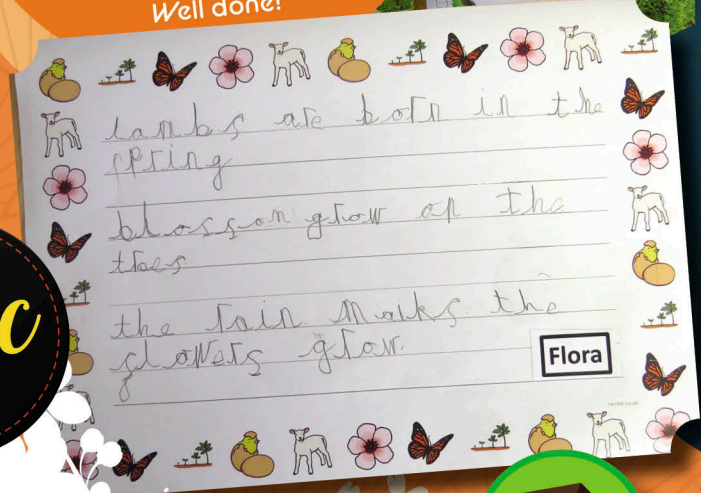 Well done!
lambs are born in the
spring
blosson grow on the
trees
the rain maks the
flowers grow.
Flora
c